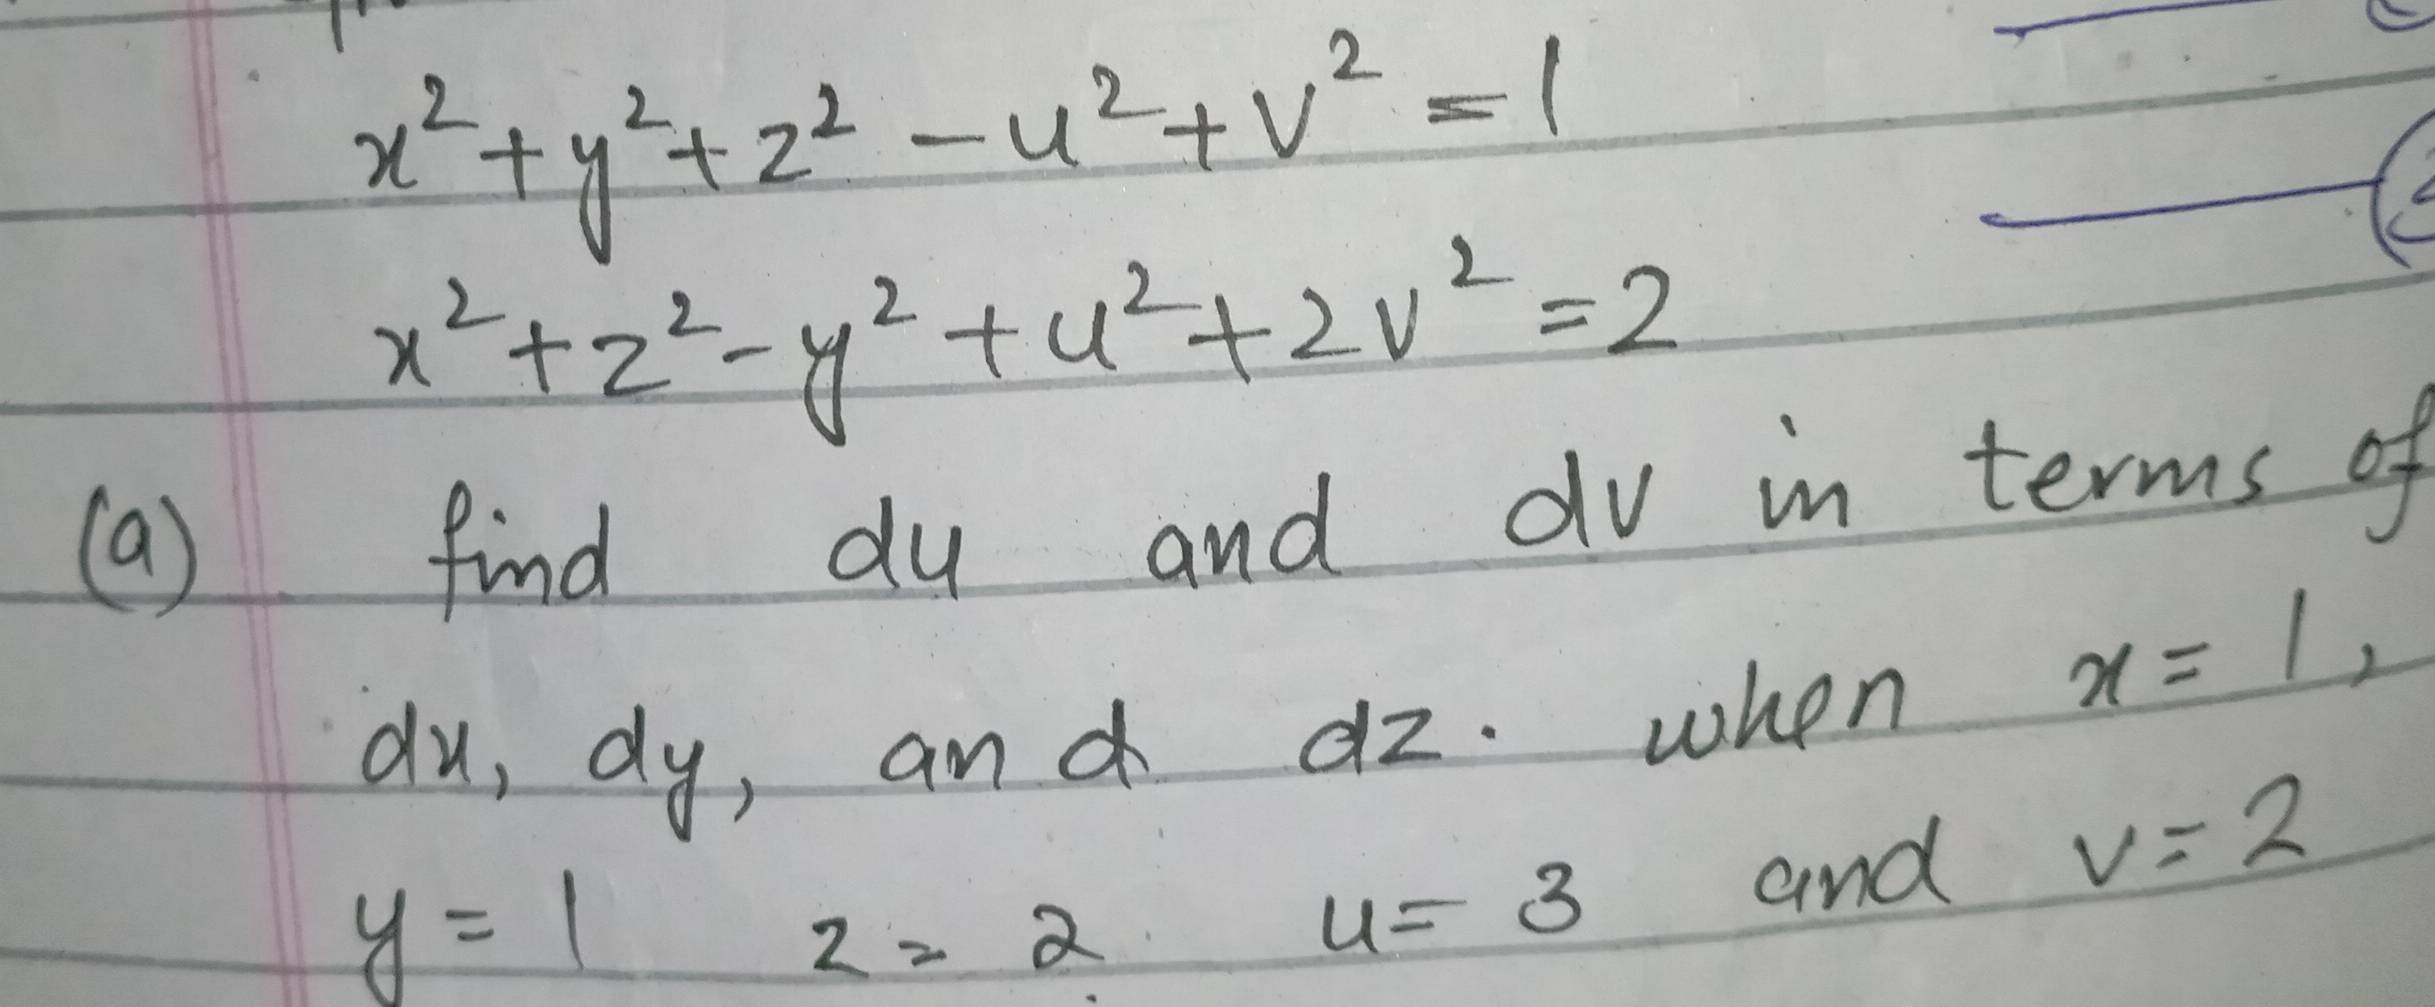 x² + y² + z² - u² + v² = 1
x² + z² - y² + u² + 2v² = 2
(a) find du and dv in terms of
dx, dy, and dz. when x = 1,
y = 1 z = 2 u = 3 and v = 2